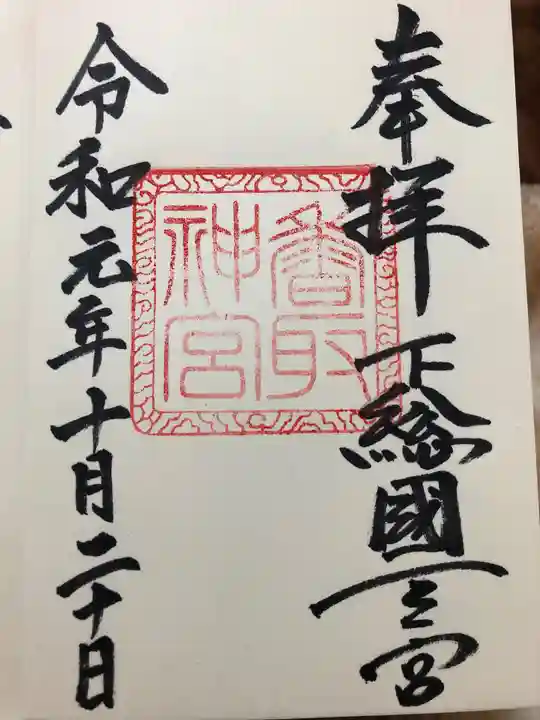 奉拝 下総國一之宮
香取
神宮
令和元年十月二十日